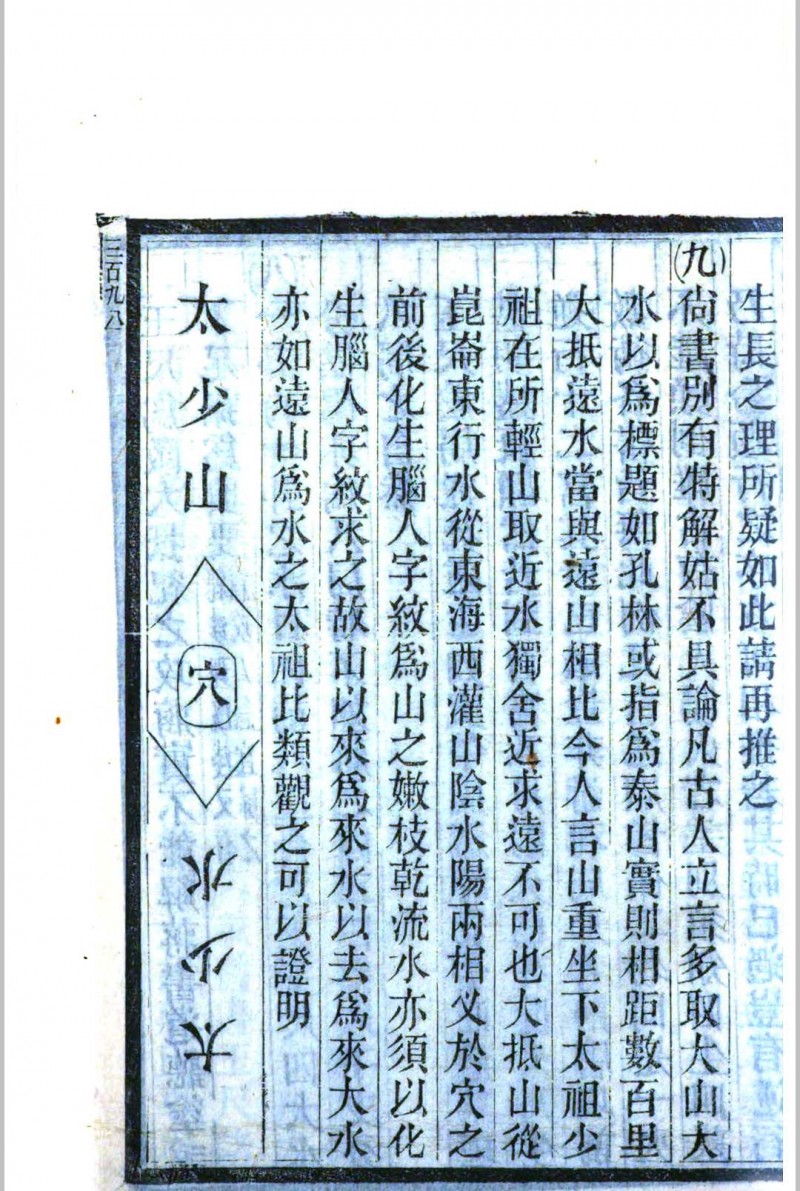 生長之理所疑如此請再推之
(九)尙書別有特解姑不具論凡古人立言多取大山大
水以爲標題如孔林或指爲泰山實則相距數百里
大抵遠水當與遠山相比今人言山重坐下太祖少
祖在所輕山取近水獨舍近求遠不可也大抵山從
崑崙東行水從東海西灌山陰水陽兩相义於穴之
前後化生腦人字紋爲山之嫩枝乾流水亦須以化
生腦人字紋求之故山以來爲來水以去爲來大水
亦如遠山爲水之太祖比類觀之可以證明
太少山 穴 水少太
三百九八